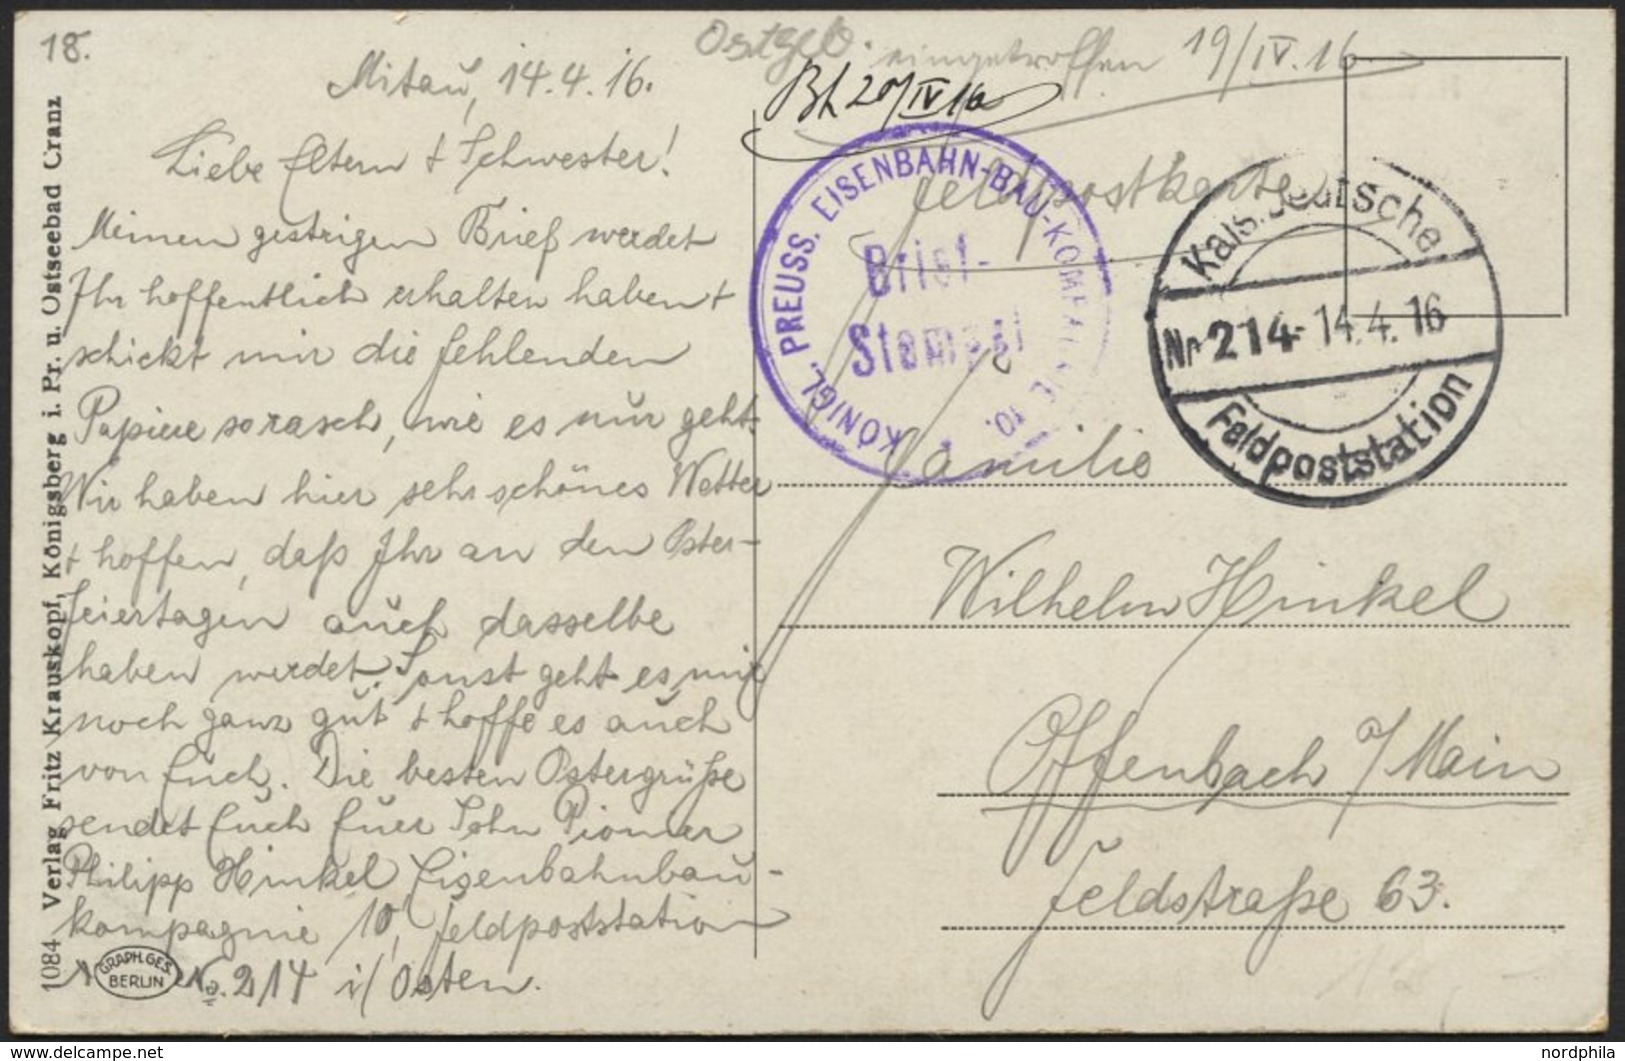 18.
Mitau, 14.4.16.
Liebe Eltern + Schwester!
Meinen gestrigen Brief werdet
Ihr hoffentlich erhalten haben +
schickt mir die fehlenden
Papiere so rasch, wie es nur geht.
Wir haben hier sehr schönes Wetter
+ hoffen, daß Ihr an den Oster-
feiertagen auch dasselbe
haben werdet. Sonst geht es mir
noch ganz gut + hoffe es auch
von Euch. Die besten Ostergrüße
sendet Euch Euer Sohn Pionier
Philipp Hinkel Eisenbahnbau-
kompagnie 10, Feldpoststation
No. 214 i/Osten.
1084 Verlag Fritz Krauskopf, Königsberg i. Pr. u. Ostseebad Cranz
GRAPH. GES.
BERLIN
Ostgeb. eingetroffen 19/IV.16.
Feldpostkarte
KÖNIGL. PREUSS. EISENBAHN-BAU-KOMPAGNIE 10.
Brief-
Stempel
Kais. Deutsche
Nr 214 14.4.16
Feldpoststation
Familie
Wilhelm Hinkel
Offenbach a/Main
Feldstraße 63.
nordphila